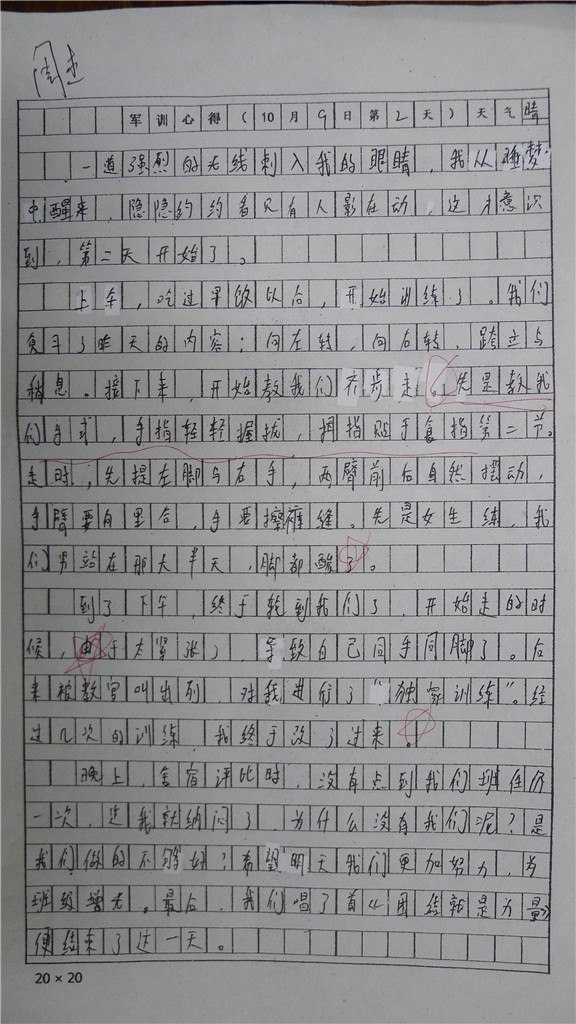 周杰
军训心得（10月9日第2天）天气晴
一道强烈的光线刺入我的眼睛，我从睡梦
中醒来，隐隐约约看见有人影在动，这才意识
到，第二天开始了。
上午，吃过早饭以后，开始训练了。我们
复习了昨天的内容：向左转，向右转，跨立与
稍息。接下来，开始教我们齐步走。先是教我
们手式，手指轻轻握拢，拇指贴于食指第二节。
走时；先提左脚与右手，两臂前后自然摆动，
手臂要自里合，手要擦裤缝。先是女生练，我
们男站在那大半天，脚都酸了。
到了下午，终于轮到我们了，开始走的时
候，由于太紧张了，导致自己同手同脚了。后
来被教官叫出列，对我进行了“独家训练”。经
过几次的训练，我终于改了过来。
晚上，舍宿评比时，没有点到我们班任何
一次，这我就纳闷了，为什么没有我们呢？是
我们做的不够好？希望明天我们更加努力，为
班级增光。最后，我们唱了首《团结就是力量》
便结束了这一天。
20×20